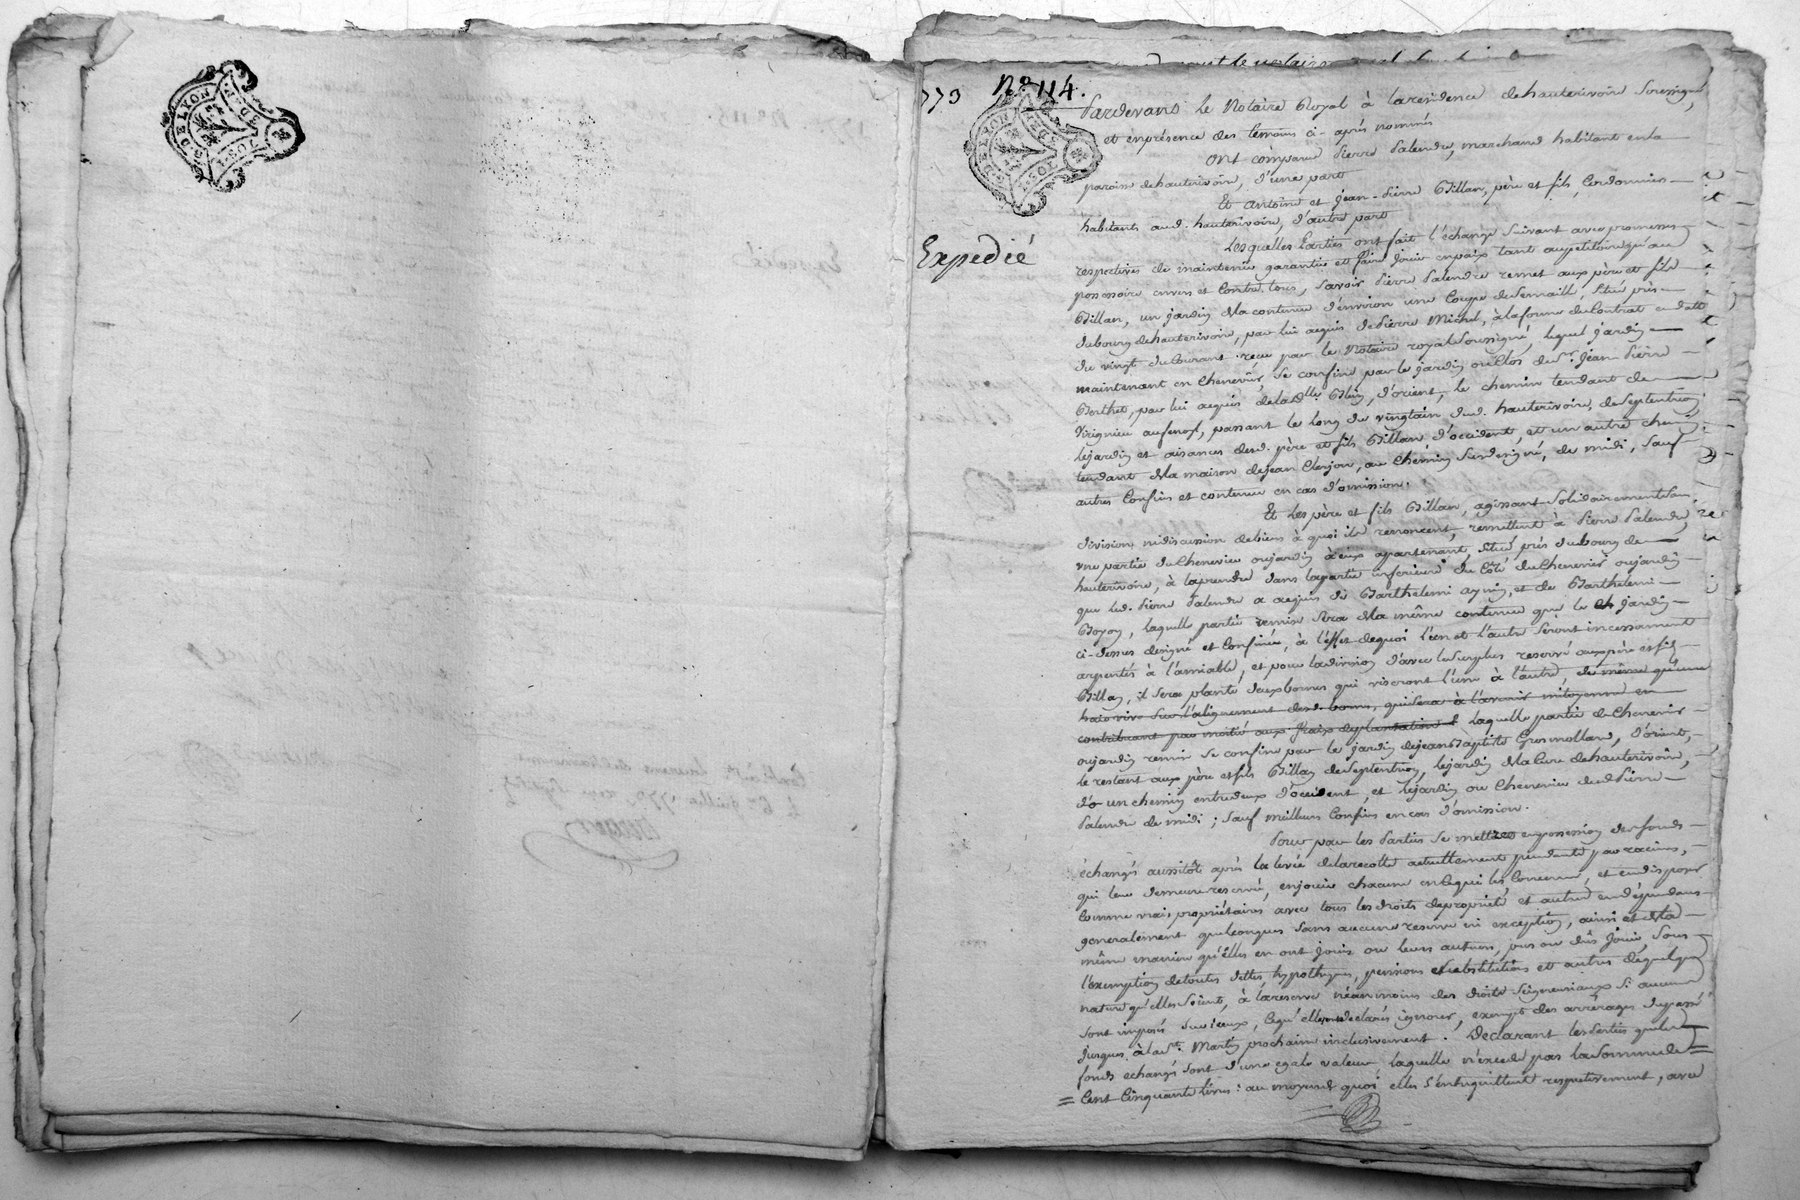 G.DE LYON
2 SOLS 8 DEN
773
No 114.
G.DE LYON
Expédié
Pardevant le Notaire Royal à la residence de hauterivoire Soussigné,
et en présence des temoins ci-après nommés
Ont comparu Pierre Palendre, marchand habitant en la
paroisse de hauterivoire, d'une part
Et Antoine et jean-Pierre Billan, père et fils, Cordonniers
habitants aud. hauterivoire, d'autre part
Lesquelles Parties ont fait l'échange Suivant avec promesses
respectives de maintenüe garantie et faire Jouir en paix tant au petitoire qu'au
possessoire envers et Contre tous, Savoir Pierre Palendre remet aux père et fils
Billan, un jardin de la contenue d'environ une Coupe de Semaille, Situé près
du bourg de hauterivoire, par lui acquis de Pierre Michel, à la forme du Contrat en datte
du vingt du Courant reçu par le Notaire royal Soussigné, lequel jardin
maintenant en Chenevier, Se confine par le jardin ou Clos de Sr. jean Pierre
Berthet, par lui acquis de la dlle. Blein, d'orient, le chemin tendant de
Virignieu au fenoyl, passant le long du vingtain dud. hauterivoire, de Septentrion,
le jardin et aisances desd. père et fils Billan d'occident, et un autre chemin
tendant de la maison de jean Clerjon, au Chemin Susdesigné, de midi, Sauf
autres Confins et contenue en cas d'omission.
Et Les père et fils Billan, agissant Solidairement Sans
division ni discussion de biens à quoi ils renoncent, remettent à Pierre Palendre,
une partie du Chenevier ou jardin à eux appartenant, Situé près du bourg de
hauterivoire, à la prendre dans la partie inferieure du Côté du Chenevier ou jardin
que led. Pierre Palendre a acquis de Barthelemi aynin, et de Barthelemi
Boyon, laquelle partie remise Sera de la même contenue que le jardin
ci-dessus designé et Confiné, à l'effet de quoi l'un et l'autre Seront incessament
arpentés à l'amiable, et pour la division d'avec le Surplus reservé aux père et fils
Billan, il Sera planté deux bornes qui viseront l'une à l'autre, de même qu'une
haie vive Sur l'alignement desd. bornes, qui Sera à l'avenir mitoyenne en
contribuant par moitié aux fraix de plantation & laquelle partie de Chenevier
ou jardin remis Se confine par le jardin de jean Baptiste Grosmollard, d'orient,
le restant aux père et fils Billan de Septentrion, le jardin de la Cure de hauterivoire,
un chemin entre deux d'occident, et le jardin ou Chenevier dud. Pierre
Palendre de midi ; Sauf meilleurs Confins en cas d'omission.
Pour par les Parties Se mettre en possession des fonds
échangés aussitôt après la levée de la recolte actuellement pendante par racines,
qui leur demeure reservée, en jouir chacune en Ce qui les Concerne, et en disposer
Comme vrais propriétaires avec tous les droits de proprieté et autres en dépendants
generalement quelconques Sans aucune reserve ni exception, ainsi et de la
même maniere qu'elles en ont joui ou leurs auteurs, pu ou dû Jouir, Sous
l'exemption de toutes dettes, hypotheques, pensions Substitutions et autres de quelque
nature qu'elles Soient, à la reserve néanmoins des droits Seigneuriaux Si aucuns
Sont imposés Sur iceux, Ce qu'elles ont declarés ignorer, exempts des arrérages du passé
Jusques à la St. Martin prochaine inclusivement. Declarant les Parties que les
fonds echangés Sont d'une egale valeur, laquelle n'excede pas la Somme de
Cent Cinquante livres : au moyen de quoi elles S'entrequittent respectivement, avec